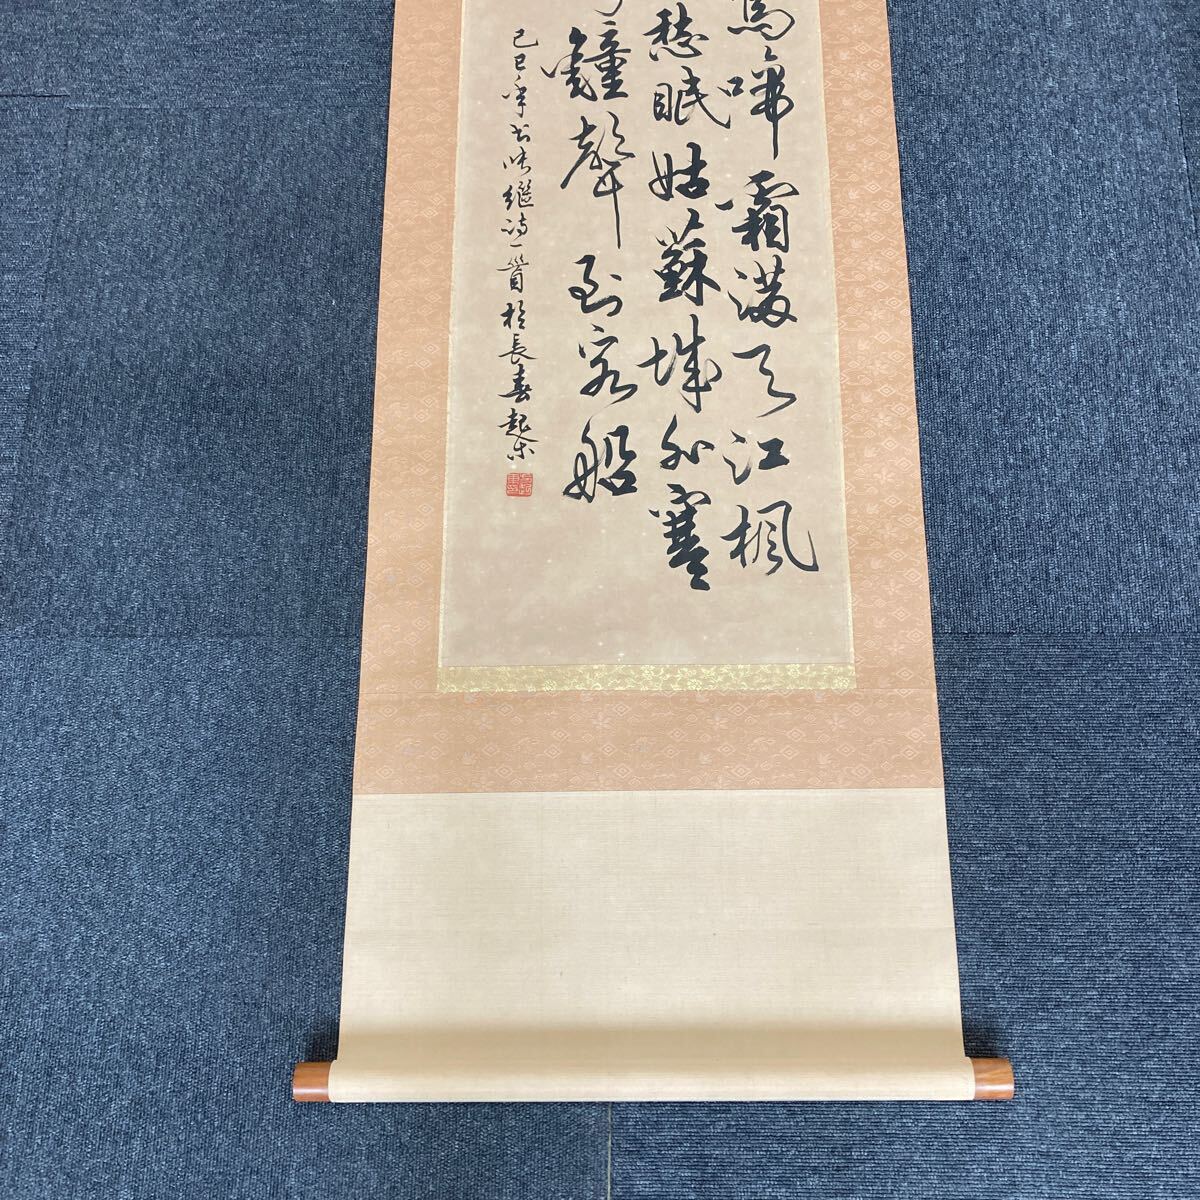 烏啼霜滿天江楓
愁眠姑蘇城外寒
鐘聲到客船
己巳年書張繼詩一首於長春起樂